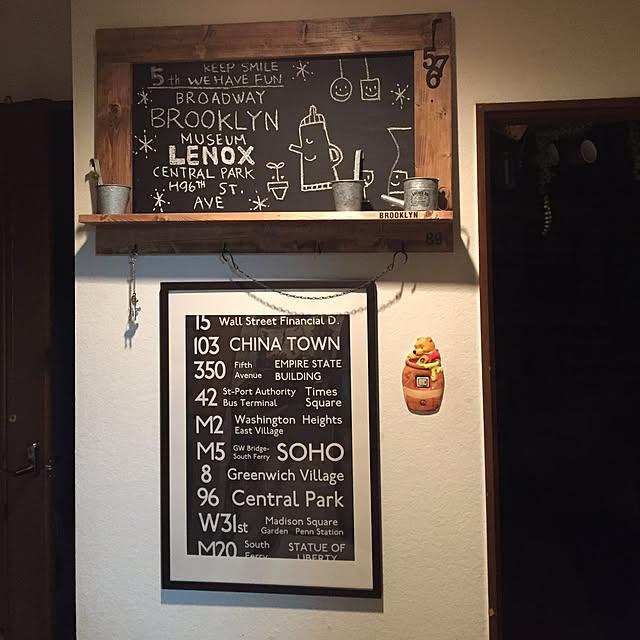 5th KEEP SMILE
WE HAVE FUN
BROADWAY
BROOKLYN
MUSEUM
LENOX
CENTRAL PARK
H96TH ST.
AVE
576
BROOKLYN
89
15 Wall Street Financial D.
103 CHINA TOWN
350 Fifth Avenue EMPIRE STATE BUILDING
42 St-Port Authority Bus Terminal Times Square
M2 Washington Heights East Village
M5 GW Bridge- South Ferry SOHO
8 Greenwich Village
96 Central Park
W31st Madison Square Garden Penn Station
M20 South Ferry STATUE OF LIBERTY